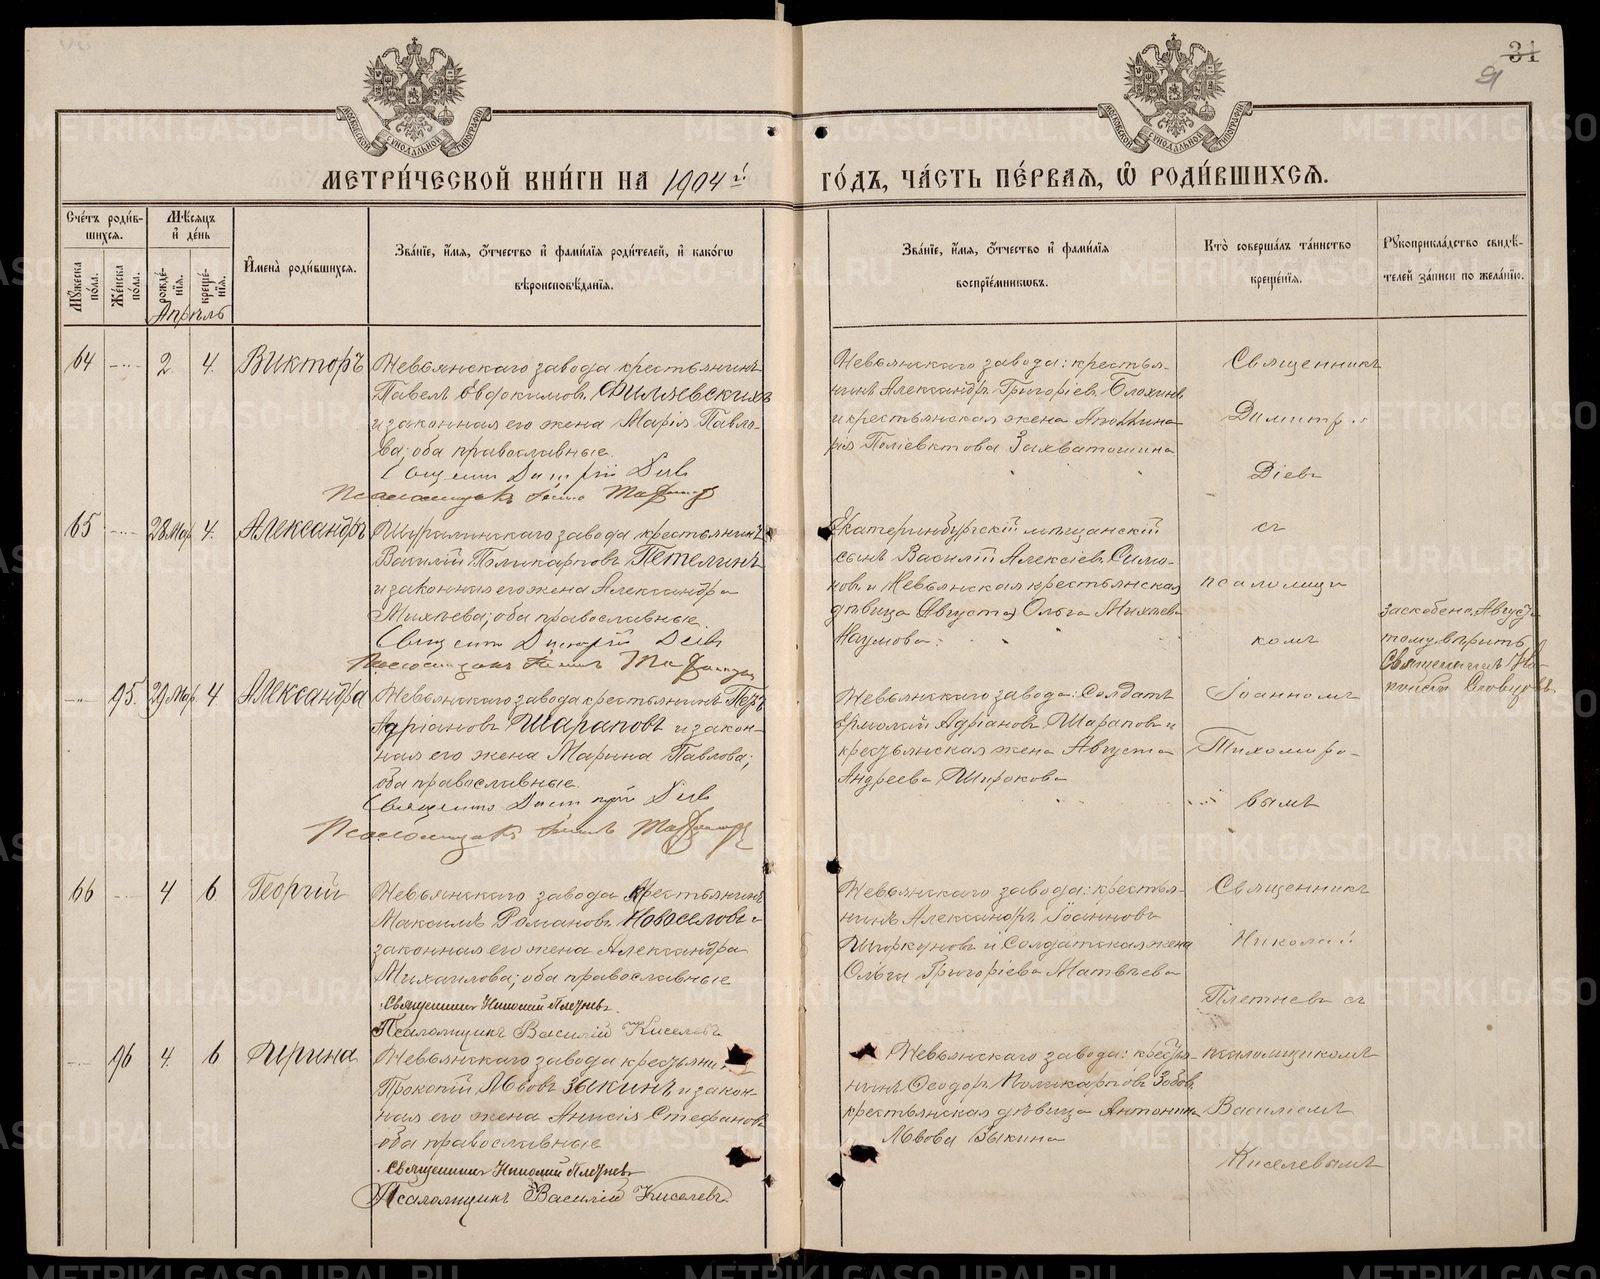 31
МЕТРИ́ЧЕСКОЙ КНИ́ГИ НА 1904й
ГО́ДЪ, ЧА́СТЬ ПЕ́РВАЯ, Ѡ РОДИ́ВШИХСЯ.
МОСКОВСКОЙ СѴНОДАЛЬНОЙ ТИПОГРАФІИ
МОСКОВСКОЙ СѴНОДАЛЬНОЙ ТИПОГРАФІИ
Сче́тъ роди́вшихся.
Мꙋ́жеска по́ла.
Же́нска по́ла.
Мѣ́сяцъ и҆ де́нь
рожде́нїя.
креще́нїя.
И҆мена̀ роди́вшихся.
Зва́нїе, и҆́мя, ѻ҆́тчество и҆ фами́лїя роди́телей, и҆ како́гѡ
вѣроисповѣ́данїя.
Зва́нїе, и҆́мя, ѻ҆́тчество и҆ фами́лїя
воспрїе́мникѡвъ.
Кто̀ соверша́лъ та́инство
креще́нїя.
Рꙋкоприкла́дство свидѣ́телей за́писи по жела́нїю.
Апрѣль
64 2. 4. Викторъ
Невьянскаго завода крестьянинъ
Павелъ Евдокимовъ Филяевскихъ
и законная его жена Марія Павло-
ва; оба православные.
Священникъ Димитрій Діевъ
Псаломщикъ
Невьянскаго завода: крестья-
нинъ Александръ Григоріевъ Блохинъ
и крестьянская жена Аполлина-
рія Поліевктова Захваткина
Священникъ
Димитрій
Діевъ
65 28 Мар. 4. Александръ
Шуралинскаго завода крестьянинъ
Василій Поликарповъ Петелинъ
и законная его жена Александра
Михѣева; оба православные.
Священникъ Димитрій Діевъ
Псаломщикъ
Екатеринбургскій мѣщанскій
сынъ Василій Алексіевъ Симо-
новъ и Невьянская крестьянская
дѣвица (Августа) Ольга Михѣева
Наумова.
съ
псаломщи
комъ
заскоблено Августа
тому вѣрить
Священникъ
Словцовъ
95. 29 Мар. 4 Александра
Невьянскаго завода крестьянинъ Петръ
Адріановъ Шараповъ и закон-
ная его жена Марина Павлова;
оба православные.
Священникъ Димитрій Діевъ
Псаломщикъ
Невьянскаго завода: Солдатъ
Ермолай Адріановъ Шараповъ и
крестьянская жена Августа
Андреева Широкова
Іоанномъ
Тихомиро-
вымъ
66 4 6 Георгій
Невьянскаго завода крестьянинъ
Максимъ Романовъ Новоселовъ и
законная его жена Александра
Михаилова; оба православные
Священникъ Николай Плетневъ.
Псаломщикъ Василій Киселевъ
Невьянскаго завода: крестья-
нинъ Александръ Іоанновъ
Шоркуновъ и Солдатская жена
Ольга Григоріева Матвѣева
Священникъ
Николай
Плетневъ съ
96 4. 6 Ирина
Невьянскаго завода крестьянинъ
Прокопій Львовъ Зыкинъ и закон-
ная его жена Анисія Стефанова
оба православные
Священникъ Николай Плетневъ
Псаломщикъ Василій Киселевъ.
Невьянскаго завода: крестья-
нинъ Ѳеодоръ Поликарповъ Зобовъ
крестьянская дѣвица Антонина
Львова Зыкина
псаломщикомъ
Василіемъ
Киселевымъ
METRIKI.GASO-URAL.RU